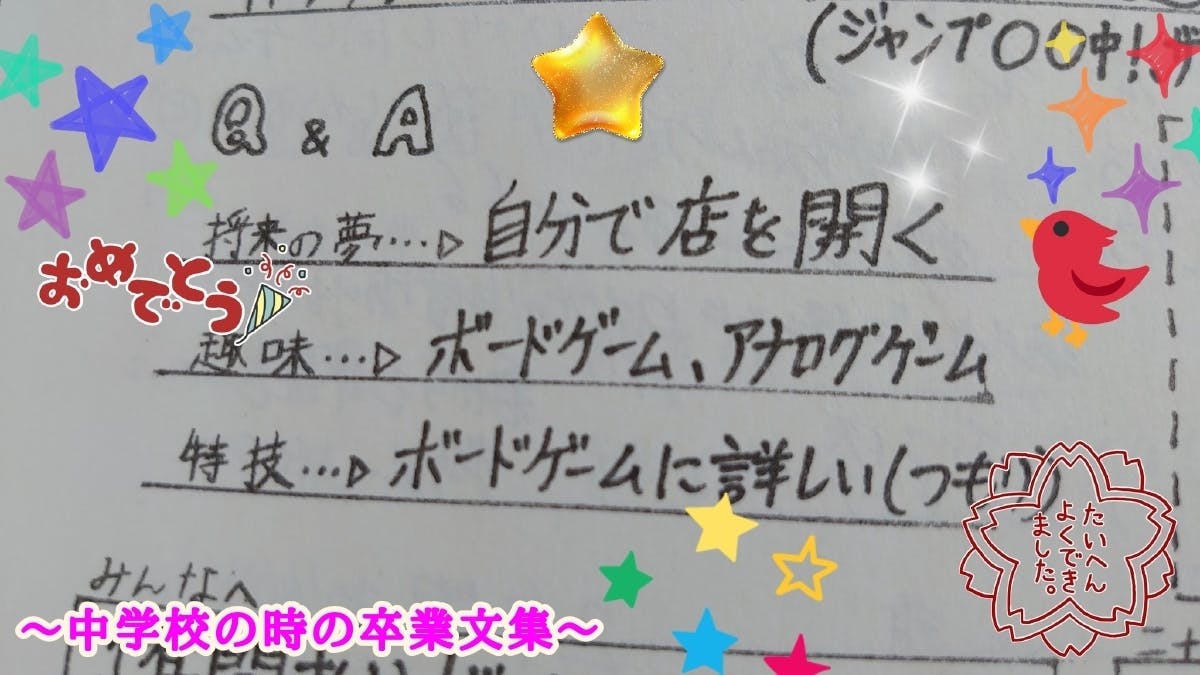 (ジャンプ〇〇中!!
Q & A
将来の夢…▷自分で店を開く
おめでとう
趣味…▷ボードゲーム、アナログゲーム
特技…▷ボードゲームに詳しい(つもり)
たいへん
よくでき
ました。
みんなへ
～中学校の時の卒業文集～